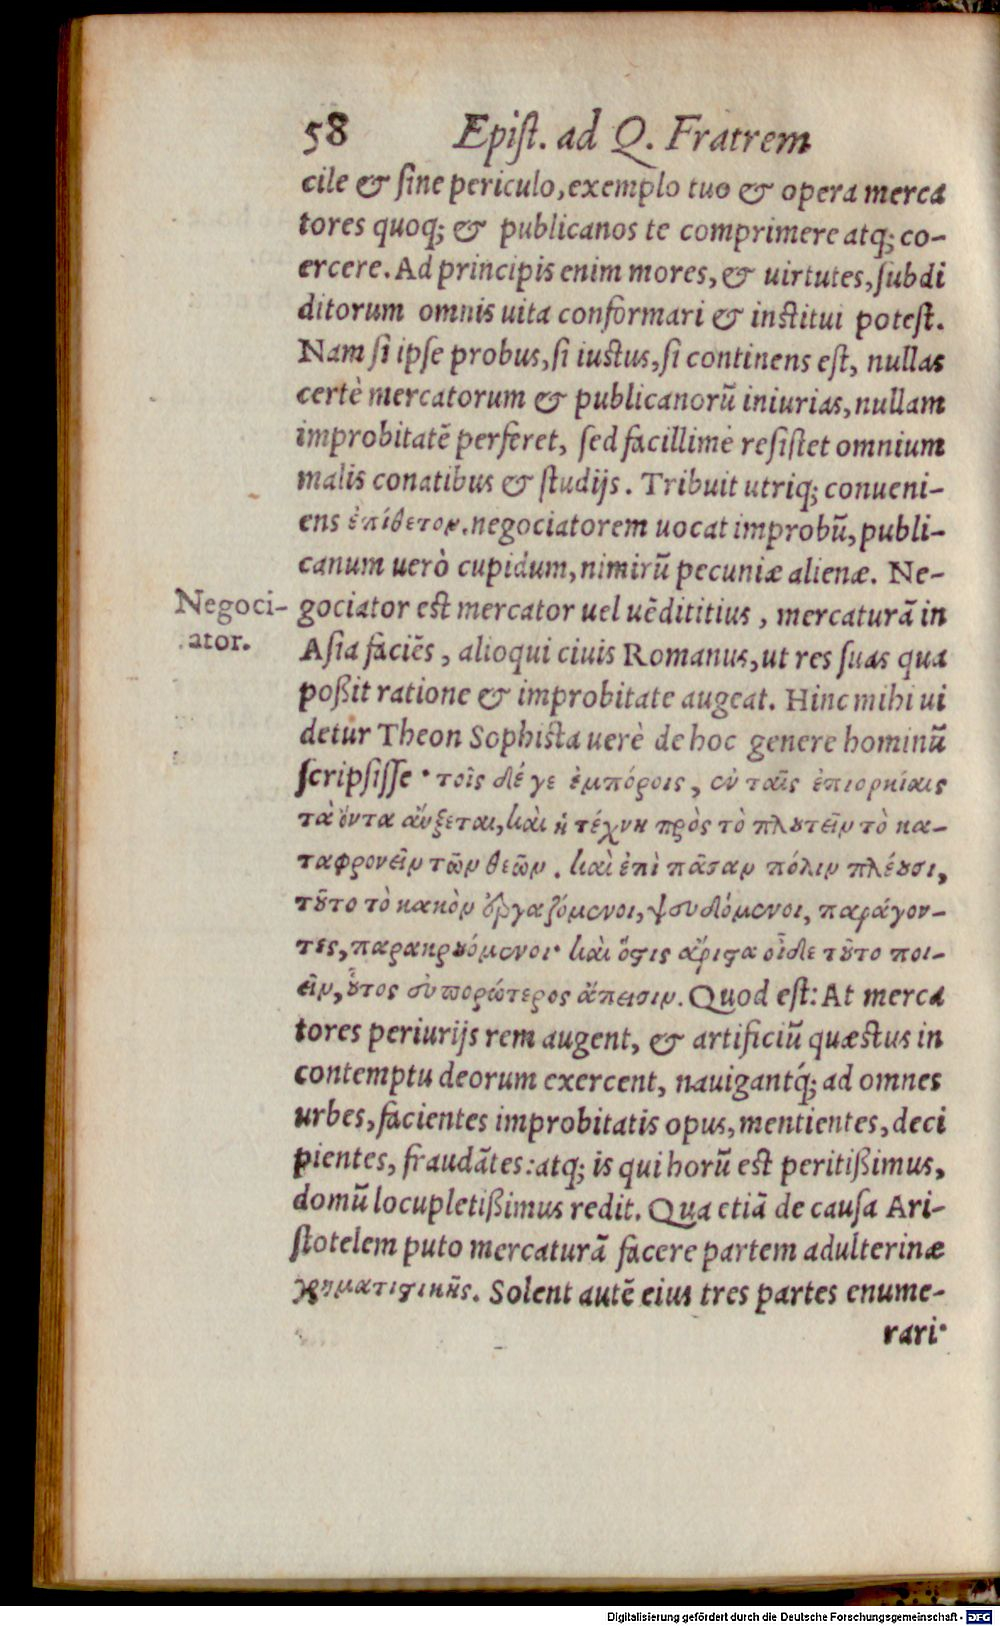 58 Epist. ad Q. Fratrem
cile & sine periculo, exemplo tuo & opera merca
tores quoq; & publicanos te comprimere atq; co-
ercere. Ad principis enim mores, & uirtutes, subdi
ditorum omnis uita conformari & institui potest.
Nam si ipse probus, si iustus, si continens est, nullas
certè mercatorum & publicanorũ iniurias, nullam
improbitatẽ perferet, sed facillimè resistet omnium
malis conatibus & studijs. Tribuit utriq; conueni-
ens ἐπίθετον. negociatorem uocat improbũ, publi-
canum uerò cupidum, nimirũ pecuniæ alienæ. Ne-
Negoci-
ator.
gociator est mercator uel uẽdititius, mercaturã in
Asia faciẽs, alioqui ciuis Romanus, ut res suas qua
poßit ratione & improbitate augeat. Hinc mihi ui
detur Theon Sophista uerè de hoc genere hominũ
scripsisse· τοῖς δέ γε ἐμπόροις, ἐν ταῖς ἐπιορκίαις
τὰ ὄντα αὔξεται, καὶ ἡ τέχνη πρὸς τὸ πλουτεῖν τὸ κα-
ταφρονεῖν τῶν θεῶν. καὶ ἐπὶ πᾶσαν πόλιν πλέουσι,
τοῦτο τὸ κακὸν ἐργαζόμενοι, ψευδόμενοι, παράγον-
τες, παρακρουόμενοι· καὶ ὅστις ἄριστα οἶδε τοῦτο ποι-
εῖν, οὗτος εὐπορώτερος ἄπεισιν. Quod est: At merca
tores periurijs rem augent, & artificiũ quæstus in
contemptu deorum exercent, nauigantq́; ad omnes
urbes, facientes improbitatis opus, mentientes, deci
pientes, fraudãtes: atq; is qui horũ est peritißimus,
domũ locupletißimus redit. Qua etiã de causa Ari-
stotelem puto mercaturã facere partem adulterinæ
χρηματιστικῆς. Solent autẽ eius tres partes enume-
rari·
Digitalisierung gefördert durch die Deutsche Forschungsgemeinschaft - DFG